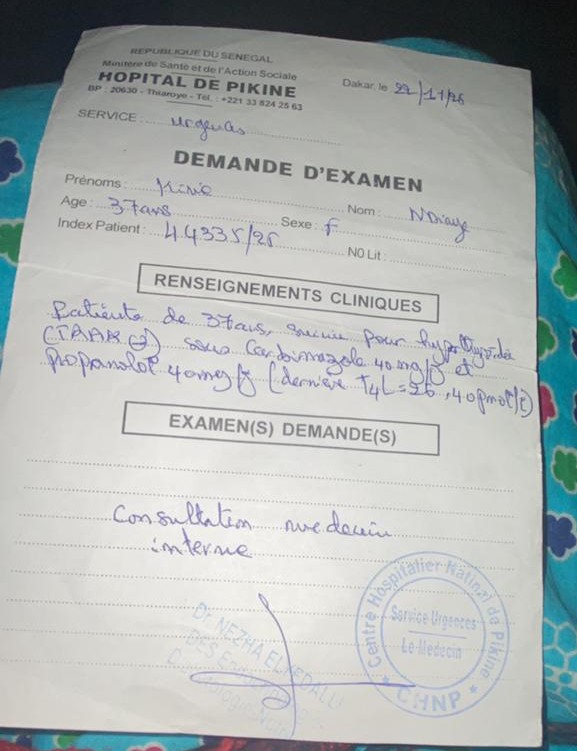 REPUBLIQUE DU SENEGAL
Ministère de Santé et de l'Action Sociale
HOPITAL DE PIKINE
BP : 20630 - Thiaroye - Tél. : +221 33 824 25 63
Dakar, le 22/11/25
SERVICE : Urgences
DEMANDE D'EXAMEN
Prénoms : Nom : NDiaye
Age : 37ans Sexe : F
Index Patient : 44335/25 N0 Lit :
RENSEIGNEMENTS CLINIQUES
Patiente de 37ans, suivie pour hyperthyroidie
(TRAK ) sous Carbimazole 40mg/j et
Propanolol 40mg/j (dernière T4L = 26,40pmol/l)
EXAMEN(S) DEMANDE(S)
Consultation medecin
interne
Dr. NEZHA
Centre Hospitalier National de Pikine
Service Urgences
Le Médecin
CHNP